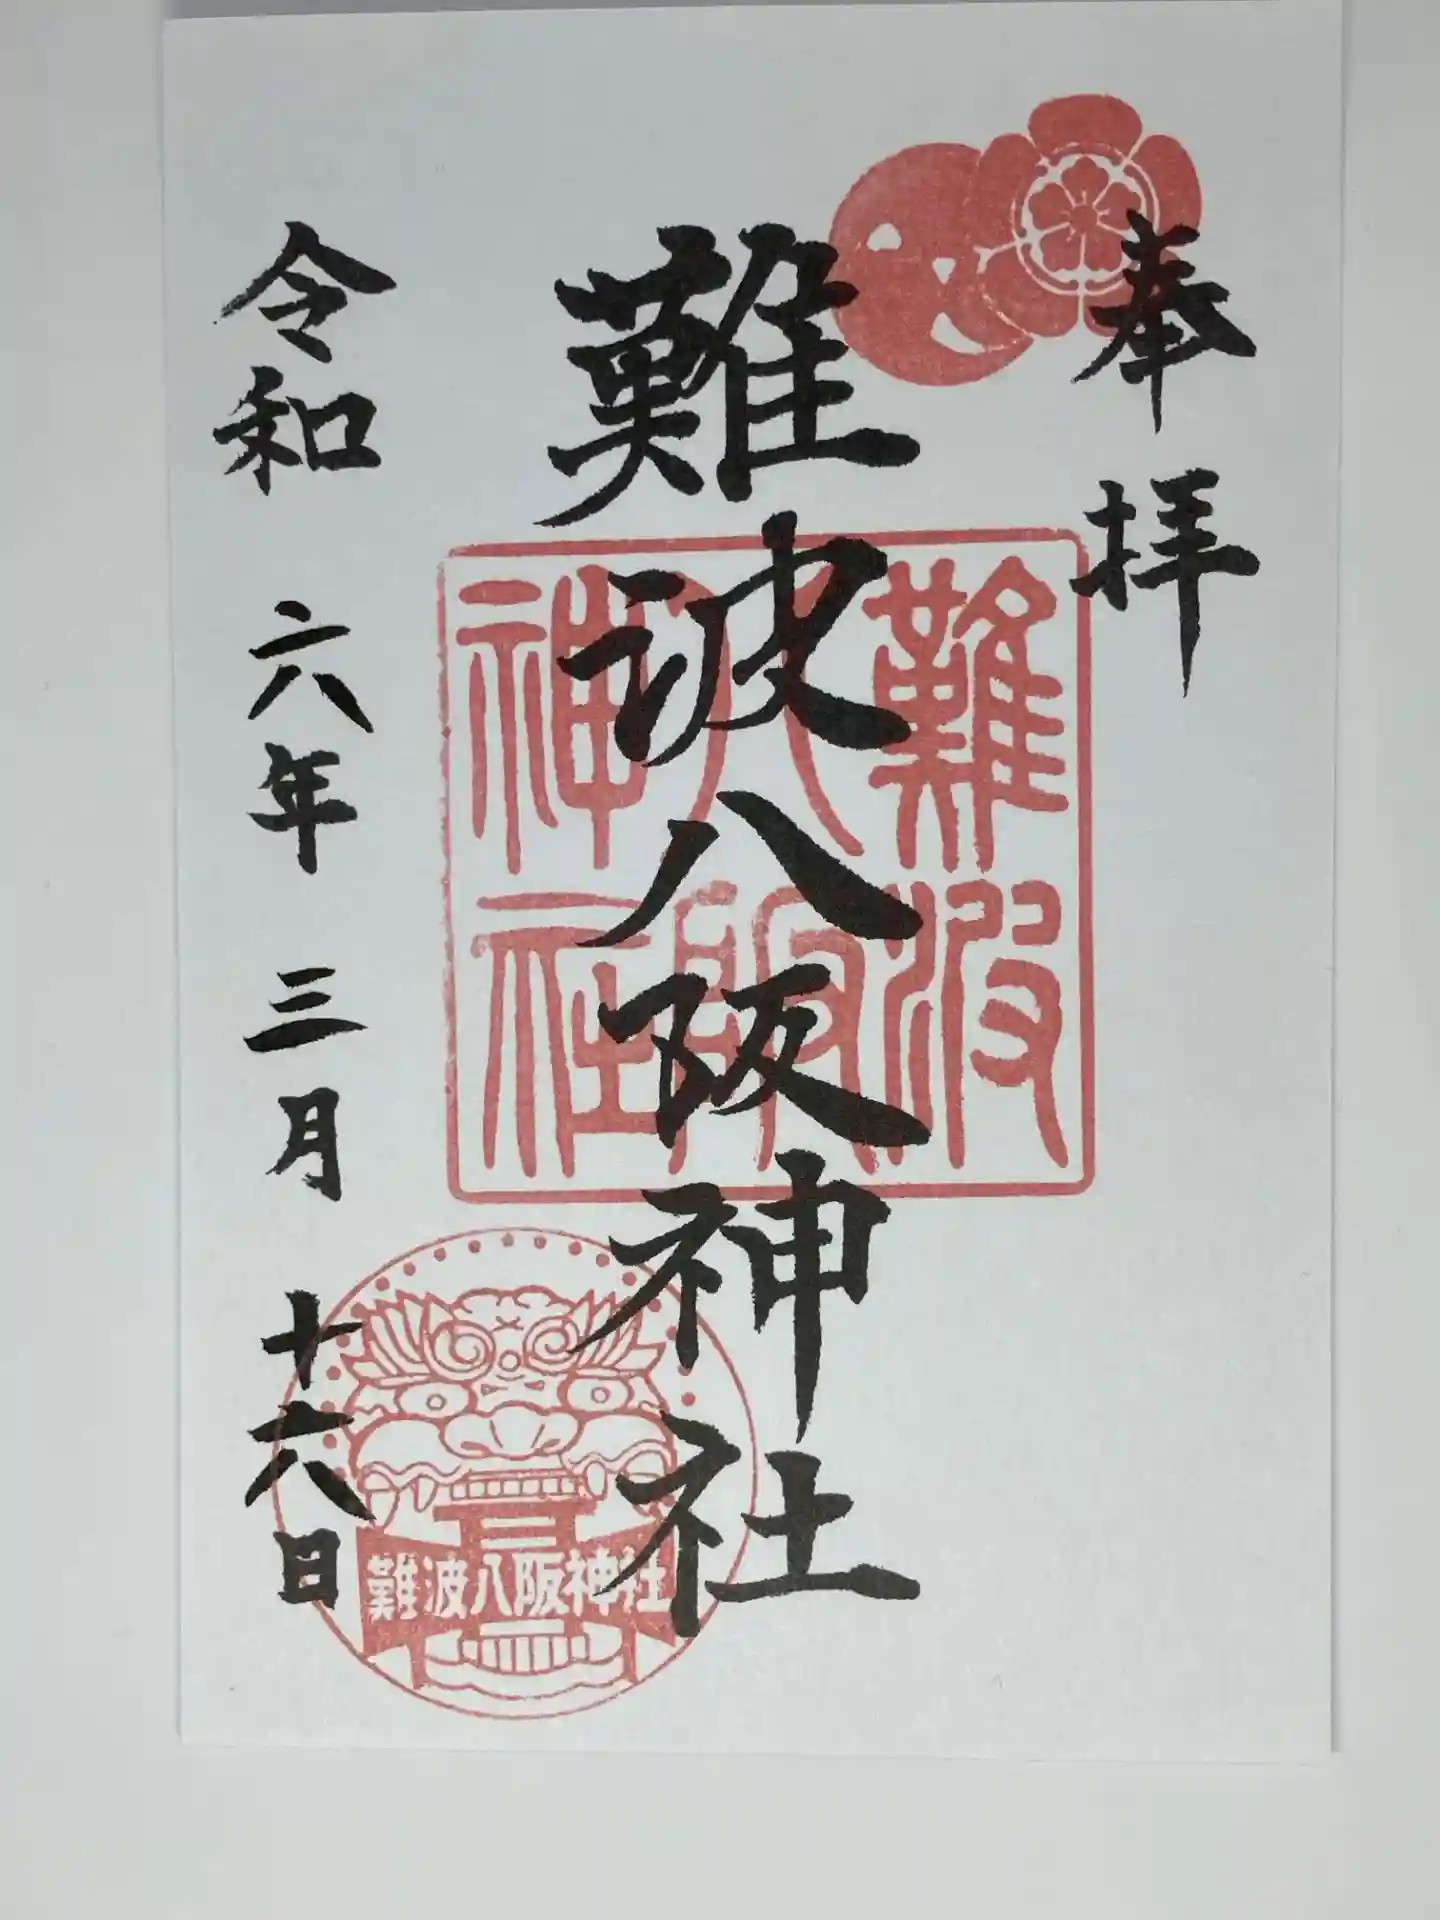 奉拝
難波八阪神社
難波
八阪
神社
令和六年三月十六日
難波八阪神社